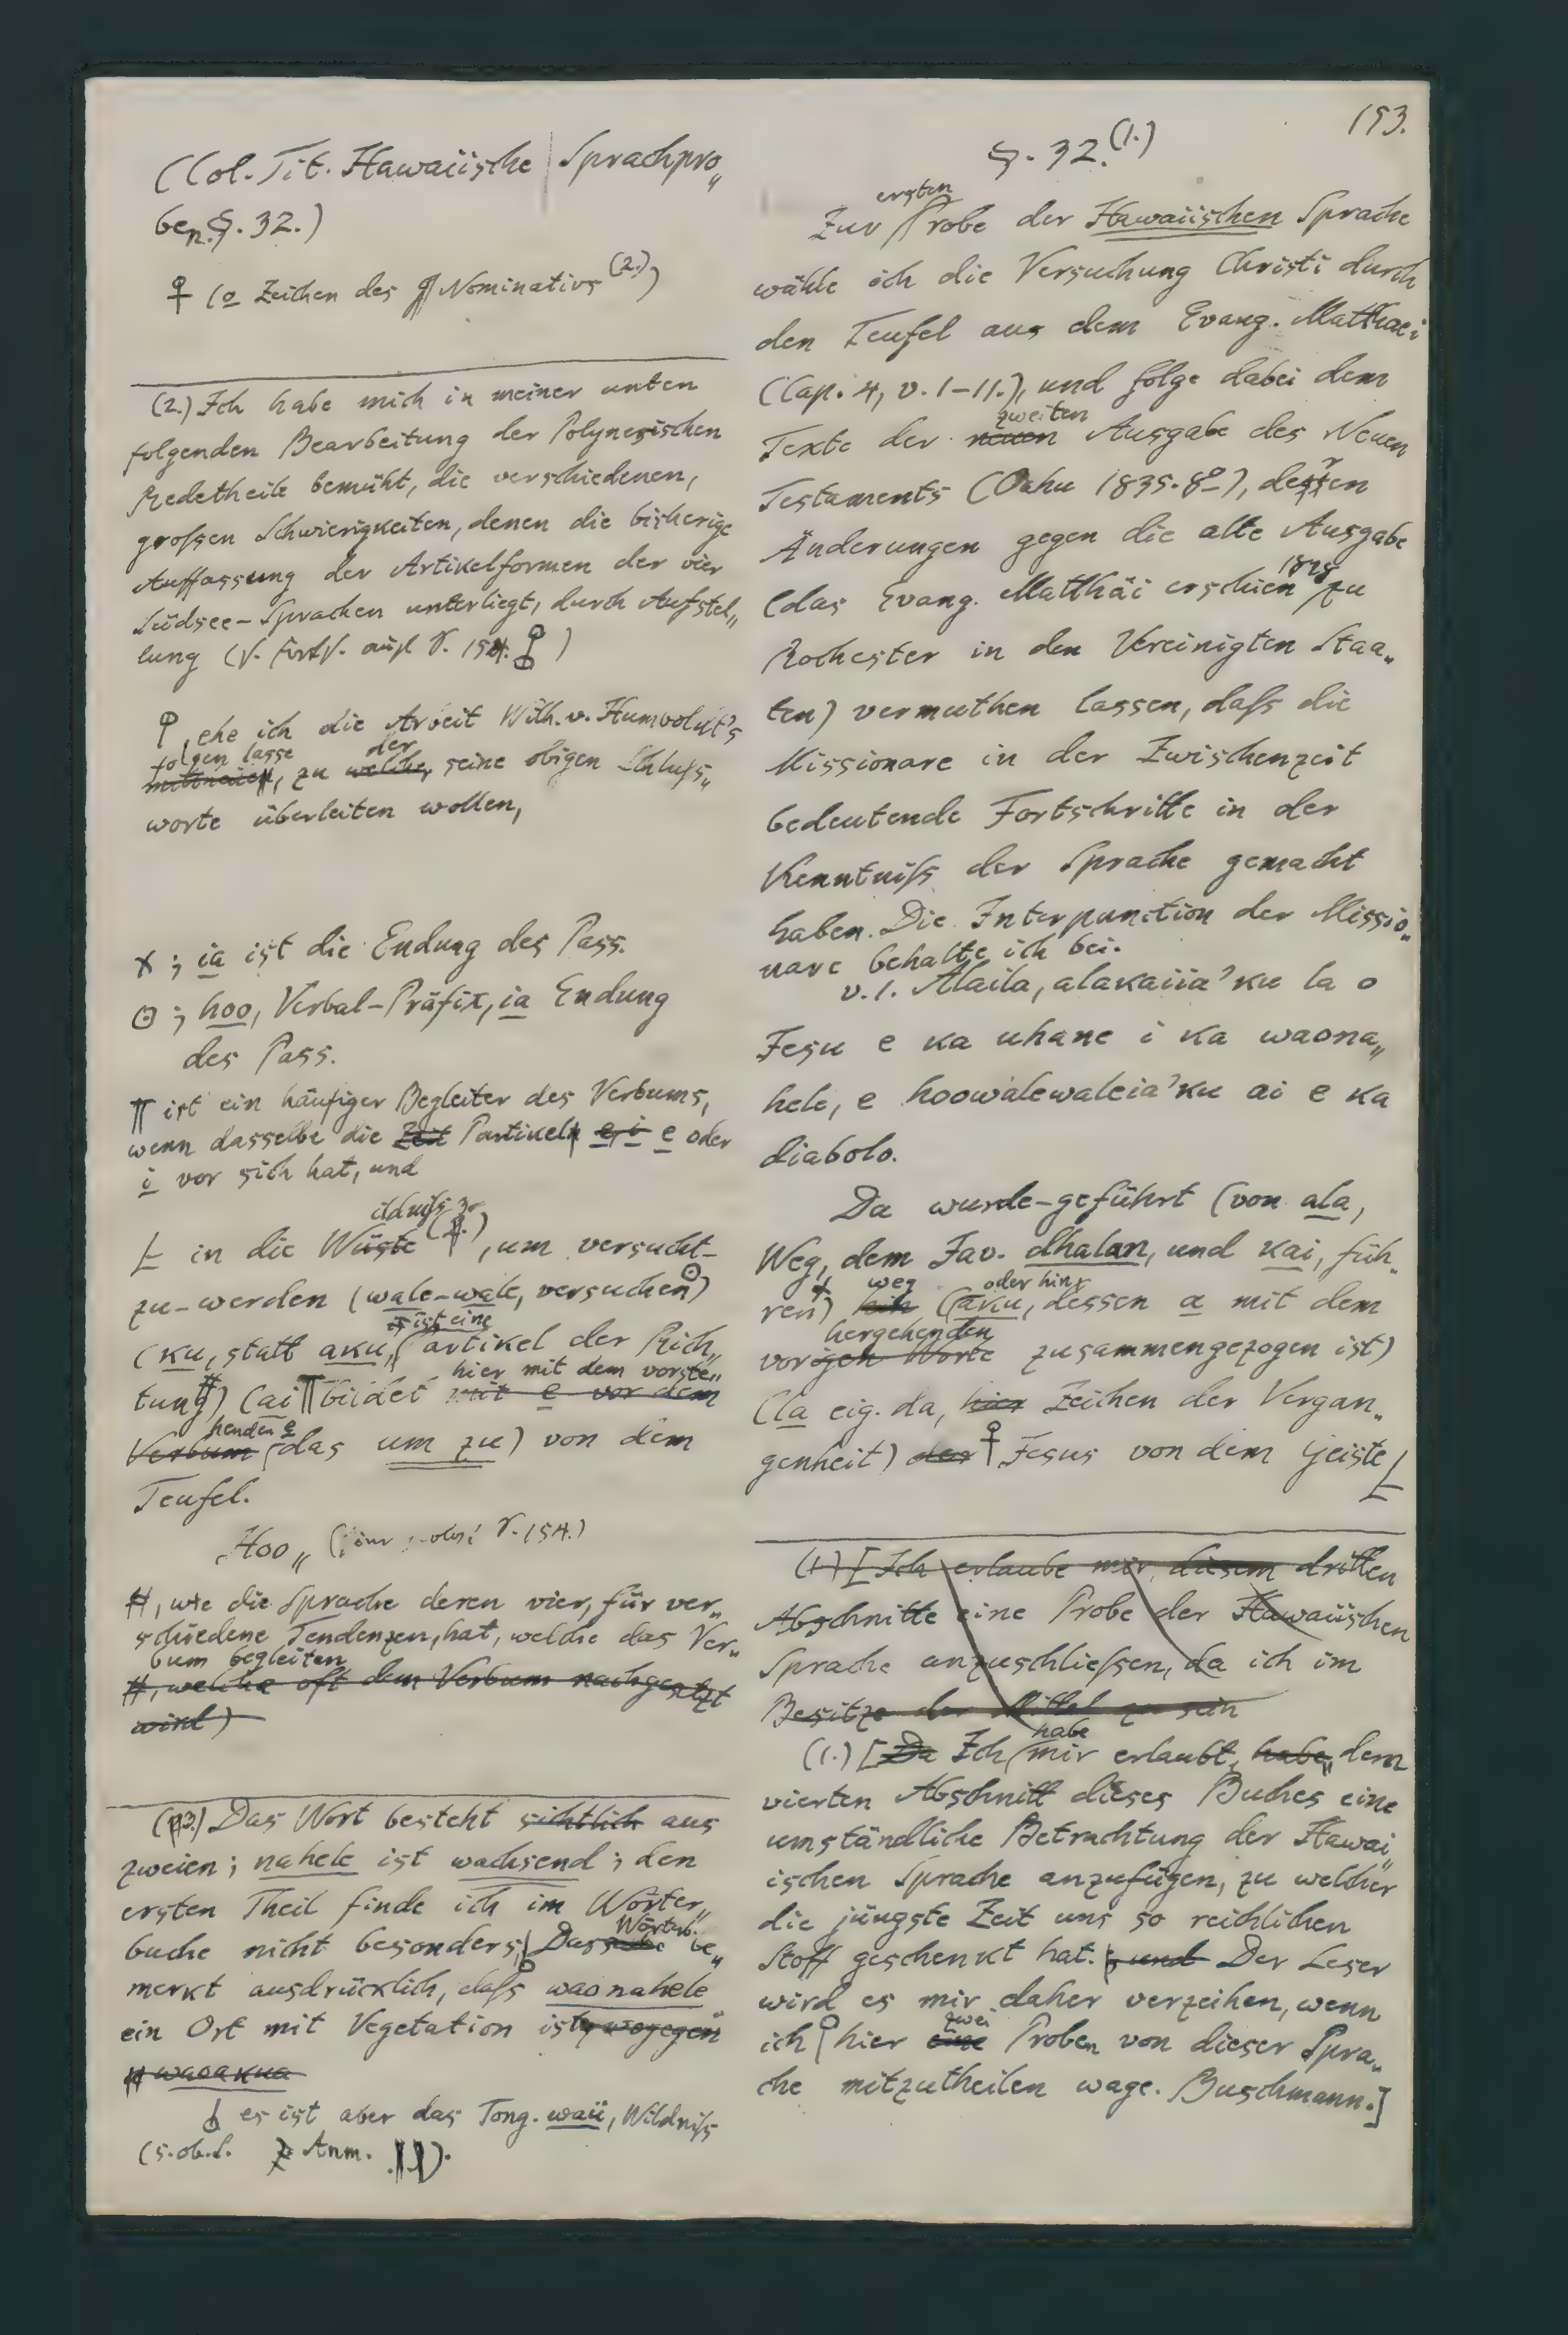 153.
(Col. Tit. Hawaiische Sprachpro„
ben. §. 32.)
♀ (o Zeichen des Nominativs (2.))
(2.) Ich habe mich in meiner unten
folgenden Bearbeitung der Polynesischen
Redetheile bemüht, die verschiedenen,
großen Schwierigkeiten, denen die bisherige
Auffassung der Artikelformen der vier
Südsee-Sprachen unterliegt, durch Aufstel„
lung (s. Forts. auf S. 154. )
, ehe ich die Arbeit Wilh. v. Humboldt's
folgen lasse der
mittheile, zu welcher seine obigen Schluß„
worte überleiten wollen,
x ; ia ist die Endung des Pass.
⊙ ; hoo, Verbal-Präfix, ia Endung
des Pass.
╥ ist ein häufiger Begleiter des Verbums,
wenn dasselbe die Zeit Partikel e, i e oder
i vor sich hat, und
ildniß
in die Wüste, um versucht-
zu-werden (wale-wale, versuchen ⊙)
ist eine
(ku, statt aku, Partikel der Rich„
hier mit dem vorste„
tung #) (ai ╥ bildet mit e vor dem
henden e
Verbum das um zu) von dem
Teufel.
„Hoo„ S. 154.)
#, wie die Sprache deren vier, für ver„
schiedene Tendenzen, hat, welche das Ver„
bum begleiten
#, welche oft dem Verbum nachgesetzt
wird)
(3.) Das Wort besteht sichtlich aus
zweien; nahele ist wachsend; den
ersten Theil finde ich im Wörter„
Wörterb.
buche nicht besonders, Dasselbe be„
merkt ausdrücklich, daß waonahele
ein Ort mit Vegetation ist, wogegen
waoakua
es ist aber das Tong. waü, Wildniß
(s. ob. S. Anm. ).
§. 32. (1.)
ersten
Zur Probe der Hawaiischen Sprache
wähle ich die Versuchung Christi durch
den Teufel aus dem Evang. Matthaei
(Cap. 4, v. 1-11.), und folge dabei dem
zweiten
Texte der neuen Ausgabe des Neuen
r
Testaments (Oahu 1835. 8º), dessen
Änderungen gegen die alte Ausgabe
1828
(das Evang. Matthäi erschien zu
Rochester in den Vereinigten Staa„
ten) vermuthen lassen, daß die
Missionare in der Zwischenzeit
bedeutende Fortschritte in der
Kenntniß der Sprache gemacht
haben. Die Interpunction der Missio„
nare behalte ich bei.
v. 1. Alaila, alakaiia'ku la o
Iesu e ka uhane i ka waona„
hele, e hoowalewaleia'ku ai e ka
diabolo.
Da wurde-geführt (von ala,
Weg, dem Jav. dhalan, und kai, füh„
weg oder hin
ren x) hin (aku, dessen a mit dem
hergehenden
vorigen Worte zusammengezogen ist)
(la eig. da, hier Zeichen der Vergan„
genheit) der ♀ Jesus von dem Geiste
(1.) [Ich erlaube mir, diesem dritten
Abschnitte eine Probe der Hawaiischen
Sprache anzuschließen, da ich im
Besitze der Mittel zu sein
habe
(1.) [Da Ich mir erlaubt, habe, dem
vierten Abschnitt dieses Buches eine
umständliche Betrachtung der Hawai„
ischen Sprache anzufügen, zu welcher
die jüngste Zeit uns so reichlichen
Stoff geschenkt hat. und Der Leser
wird es mir daher verzeihen, wenn
zwei
ich hier eine Proben von dieser Spra„
che mitzutheilen wage. Buschmann.]